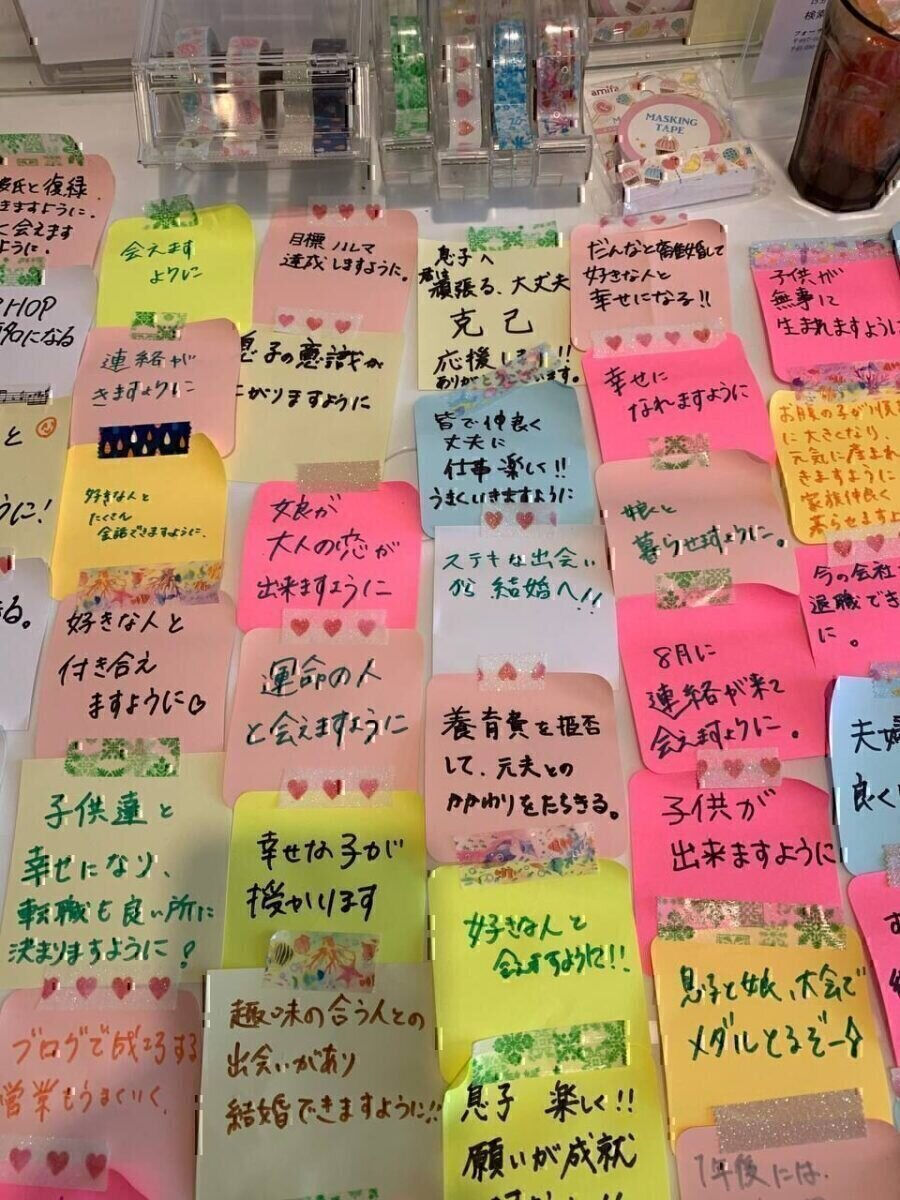 amifa
MASKING
TAPE
検索
と復縁
きますように。
く会えます
ように。
会えます
ように
目標ノルマ
達成しますように。
息子へ
頑張る、大丈夫
克己
応援します!!
ありがとうございます。
だんなと離婚して
好きな人と
幸せになる!!
子供が
無事に
生まれますように
HOP
になる
連絡が
きますように
息子の意識が
がりますように
皆で仲良く
丈夫に
仕事楽しく!!
うまくいきますように
幸せに
なれますように
お腹の子が順
に大きくなり、
元気に産まれ
きますように
家族仲良く
暮らせますよ
と
うに!
好きな人と
たくさん
会話できますように、
娘が
大人の恋が
出来ますように
ステキな出会い
から結婚へ!!
娘と
暮らせますように。
今の会社
退職でき
に。
る。
好きな人と
付き合え
ますように♡
運命の人
と会えますように
養育費を拒否
して、元夫との
かかわりをたちきる。
8月に
連絡が来て
会えますように。
夫婦
良く
子供達と
幸せになり、
転職も良い所に
決まりますように!
幸せな子が
授かります
好きな人と
会えますように!!
子供が
出来ますように
ブログで成功する
営業もうまくいく、
趣味の合う人との
出会いがあり
結婚できますように!!
息子 楽しく!!
願いが成就
息子と娘、大会で
メダルとるぞー☆
1年後には、